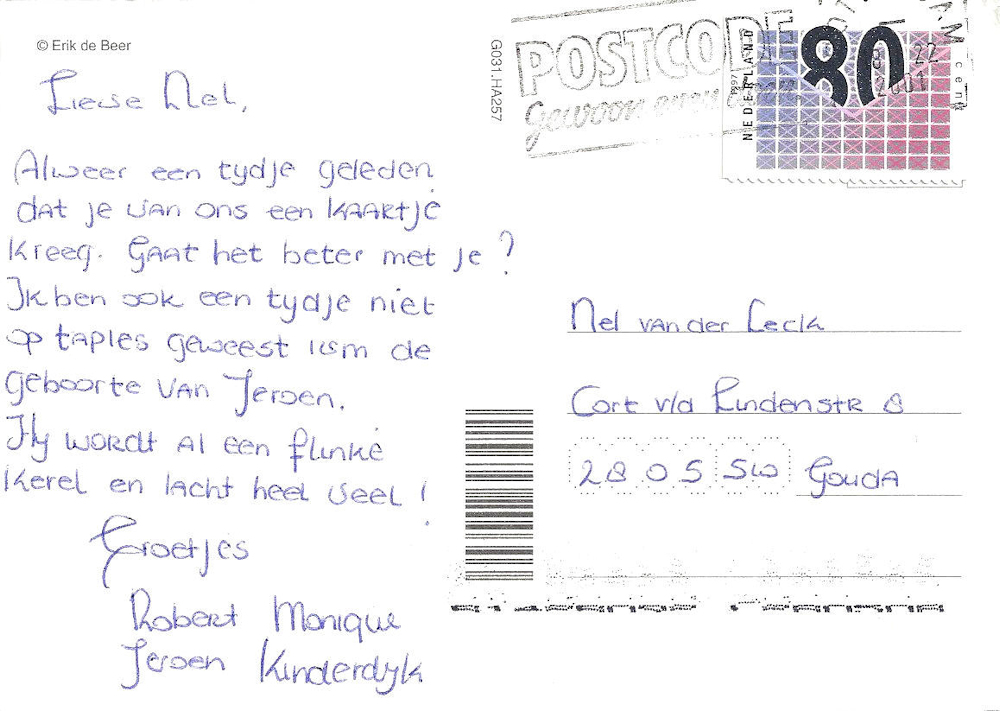 © Erik de Beer
G031.HA257
POSTCODE
Gewoon even
NEDERLAND
80
cent
22
2001
Lieve Nel,
Alweer een tydje geleden
dat je van ons een kaartje
kreeg. Gaat het beter met je?
Ik ben ook een tydje niet
op taples geweest ivm de
geboorte van Jeroen.
Hy wordt al een flinke
kerel en lacht heel veel!
Groetjes
Robert Monique
Jeroen Kinderdyk
Nel van der Leck
Cort v/d Lindenstr 8
2805 SW Gouda